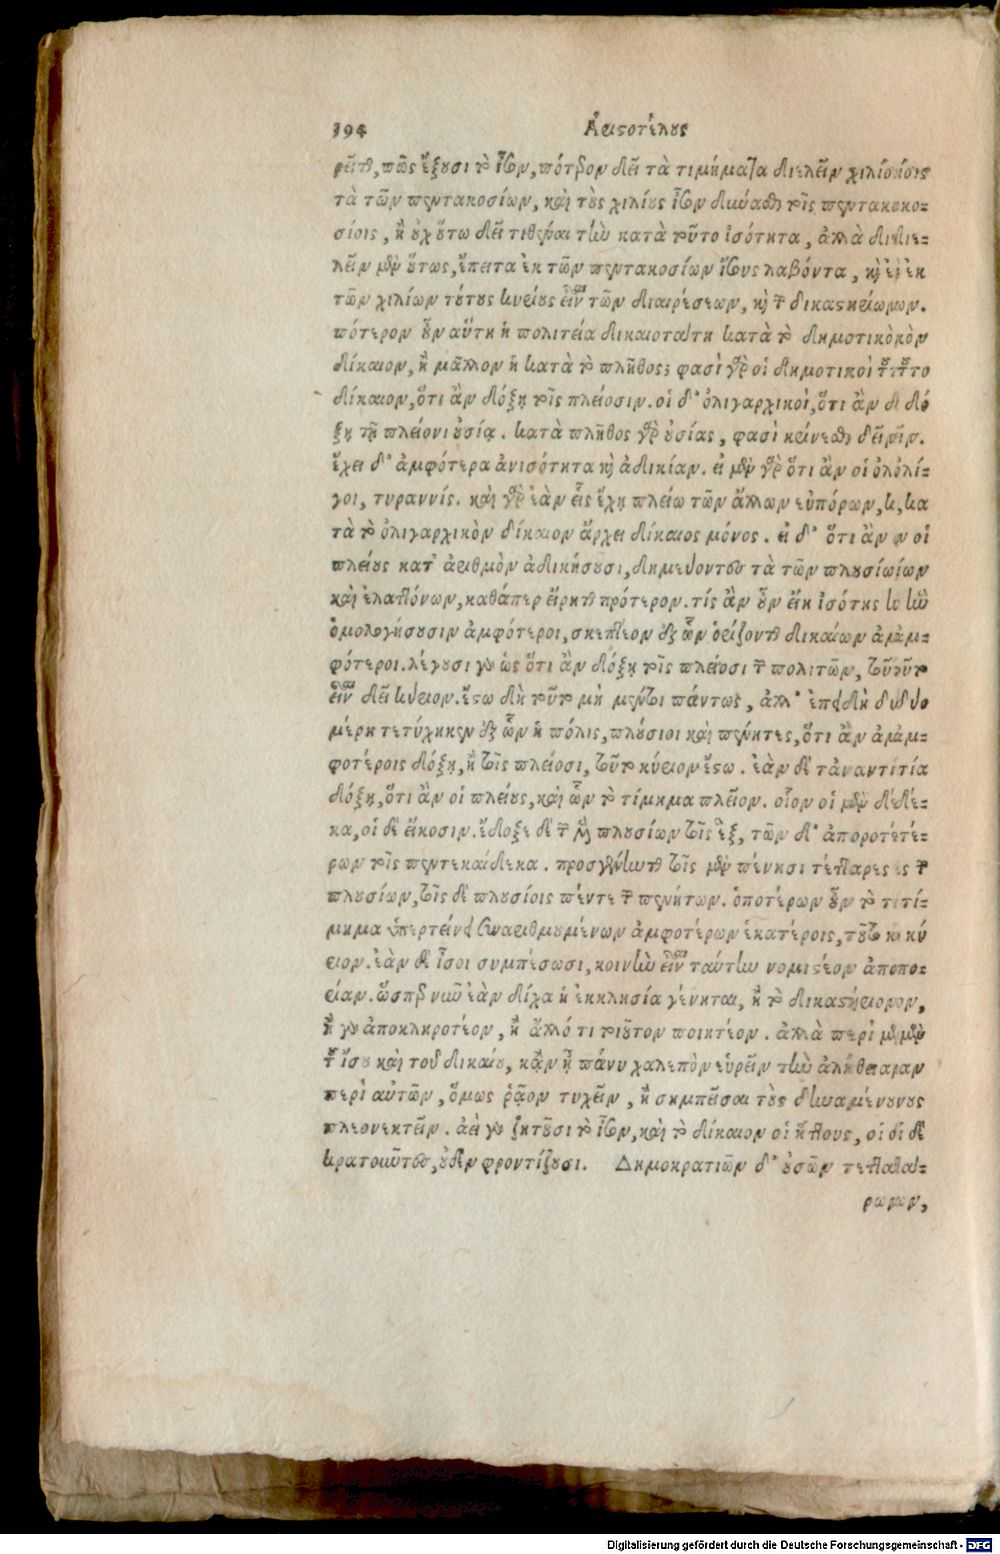 394 Ἀριστοτέλους
ρεῖται, πῶς ἕξουσι τὸ ἴσον, πότερον δεῖ τὰ τιμήματα διελεῖν χιλίοις
τὰ τῶν πεντακοσίων, καὶ τοὺς χιλίους ἴσον δύνασθαι τοῖς πεντακο-
σίοις, ἢ οὐχ οὕτω δεῖ τιθέναι τὴν κατὰ τοῦτο ἰσότητα, ἀλλὰ διε-
λεῖν μὲν οὕτως, ἔπειτα ἐκ τῶν πεντακοσίων ἴσους λαβόντα, καὶ ἐκ
τῶν χιλίων τούτους κυρίους εἶναι τῶν διαιρέσεων, καὶ τῶν δικαστηρίων.
πότερον οὖν αὕτη ἡ πολιτεία δικαιοτάτη κατὰ τὸ δημοτικὸν
δίκαιον, ἢ μᾶλλον ἡ κατὰ τὸ πλῆθος; φασὶ γὰρ οἱ δημοτικοὶ τοῦτο
δίκαιον, ὅτι ἂν δόξῃ τοῖς πλείοσιν. οἱ δ' ὀλιγαρχικοὶ, ὅτι ἂν δό
ξῃ τῇ πλείονι οὐσίᾳ. κατὰ πλῆθος γὰρ οὐσίας, φασὶ κρίνεσθαι δεῖν.
ἔχει δ' ἀμφότερα ἀνισότητα καὶ ἀδικίαν. εἰ μὲν γὰρ ὅτι ἂν οἱ ὀλί-
γοι, τυραννίς. καὶ γὰρ ἐὰν εἷς ἔχῃ πλείω τῶν ἄλλων εὐπόρων, κα
τὰ τὸ ὀλιγαρχικὸν δίκαιον ἄρχει δίκαιος μόνος. εἰ δ' ὅτι ἂν οἱ
πλείους κατ' ἀριθμὸν ἀδικήσουσι, δημεύοντες τὰ τῶν πλουσίων
καὶ ἐλαττόνων, καθάπερ εἴρηται πρότερον. τίς ἂν οὖν εἴη ἰσότης ἣν
ὁμολογήσουσιν ἀμφότεροι, σκεπτέον ἐξ ὧν ὁρίζονται δικαίων ἀμ-
φότεροι. λέγουσι γὰρ ὡς ὅτι ἂν δόξῃ τοῖς πλείοσι τῶν πολιτῶν, τοῦτο
εἶναι δεῖ κύριον. ἔστω δὴ τοῦτο μὴ μέντοι πάντως, ἀλλ' ἐπειδὴ δύο
μέρη τετύχηκεν ἐξ ὧν ἡ πόλις, πλούσιοι καὶ πένητες, ὅτι ἂν ἀμ-
φοτέροις δόξῃ, ἢ τοῖς πλείοσι, τοῦτο κύριον ἔστω. ἐὰν δὲ τἀναντία
δόξῃ, ὅτι ἂν οἱ πλείους, καὶ ὧν τὸ τίμημα πλεῖον. οἷον οἱ μὲν δέ-
κα, οἱ δὲ εἴκοσιν. ἔδοξε δὲ τῶν μὲν πλουσίων τοῖς ἓξ, τῶν δ' ἀπορωτέ-
ρων τοῖς πεντεκαίδεκα. προσγεγένηνται τοῖς μὲν πένησι τέτταρες τῶν
πλουσίων, τοῖς δὲ πλουσίοις πέντε τῶν πενήτων. ὁποτέρων οὖν τὸ τί-
μημα ὑπερτείνει συναριθμουμένων ἀμφοτέρων ἑκατέροις, τοῦτο κύ
ριον. ἐὰν δὲ ἴσοι συμπέσωσι, κοινὴν εἶναι ταύτην νομιστέον ἀπο-
ρίαν. ὥσπερ νῦν ἐὰν δίχα ἡ ἐκκλησία γένηται, ἢ τὸ δικαστήριον,
ἢ γὰρ ἀποκληροτέον, ἢ ἄλλό τι τοιοῦτον ποιητέον. ἀλλὰ περὶ μὲν
τοῦ ἴσου καὶ τοῦ δικαίου, κἂν ᾖ πάνυ χαλεπὸν εὑρεῖν τὴν ἀλήθειαν
περὶ αὐτῶν, ὅμως ῥᾷον τυχεῖν, ἢ συμπεῖσαι τοὺς δυναμένους
πλεονεκτεῖν. ἀεὶ γὰρ ζητοῦσι τὸ ἴσον, καὶ τὸ δίκαιον οἱ ἥττους, οἱ δὲ
κρατοῦντες, οὐδὲν φροντίζουσι. Δημοκρατιῶν δ' οὐσῶν τεττά-
ρων,
Digitalisierung gefördert durch die Deutsche Forschungsgemeinschaft - DFG